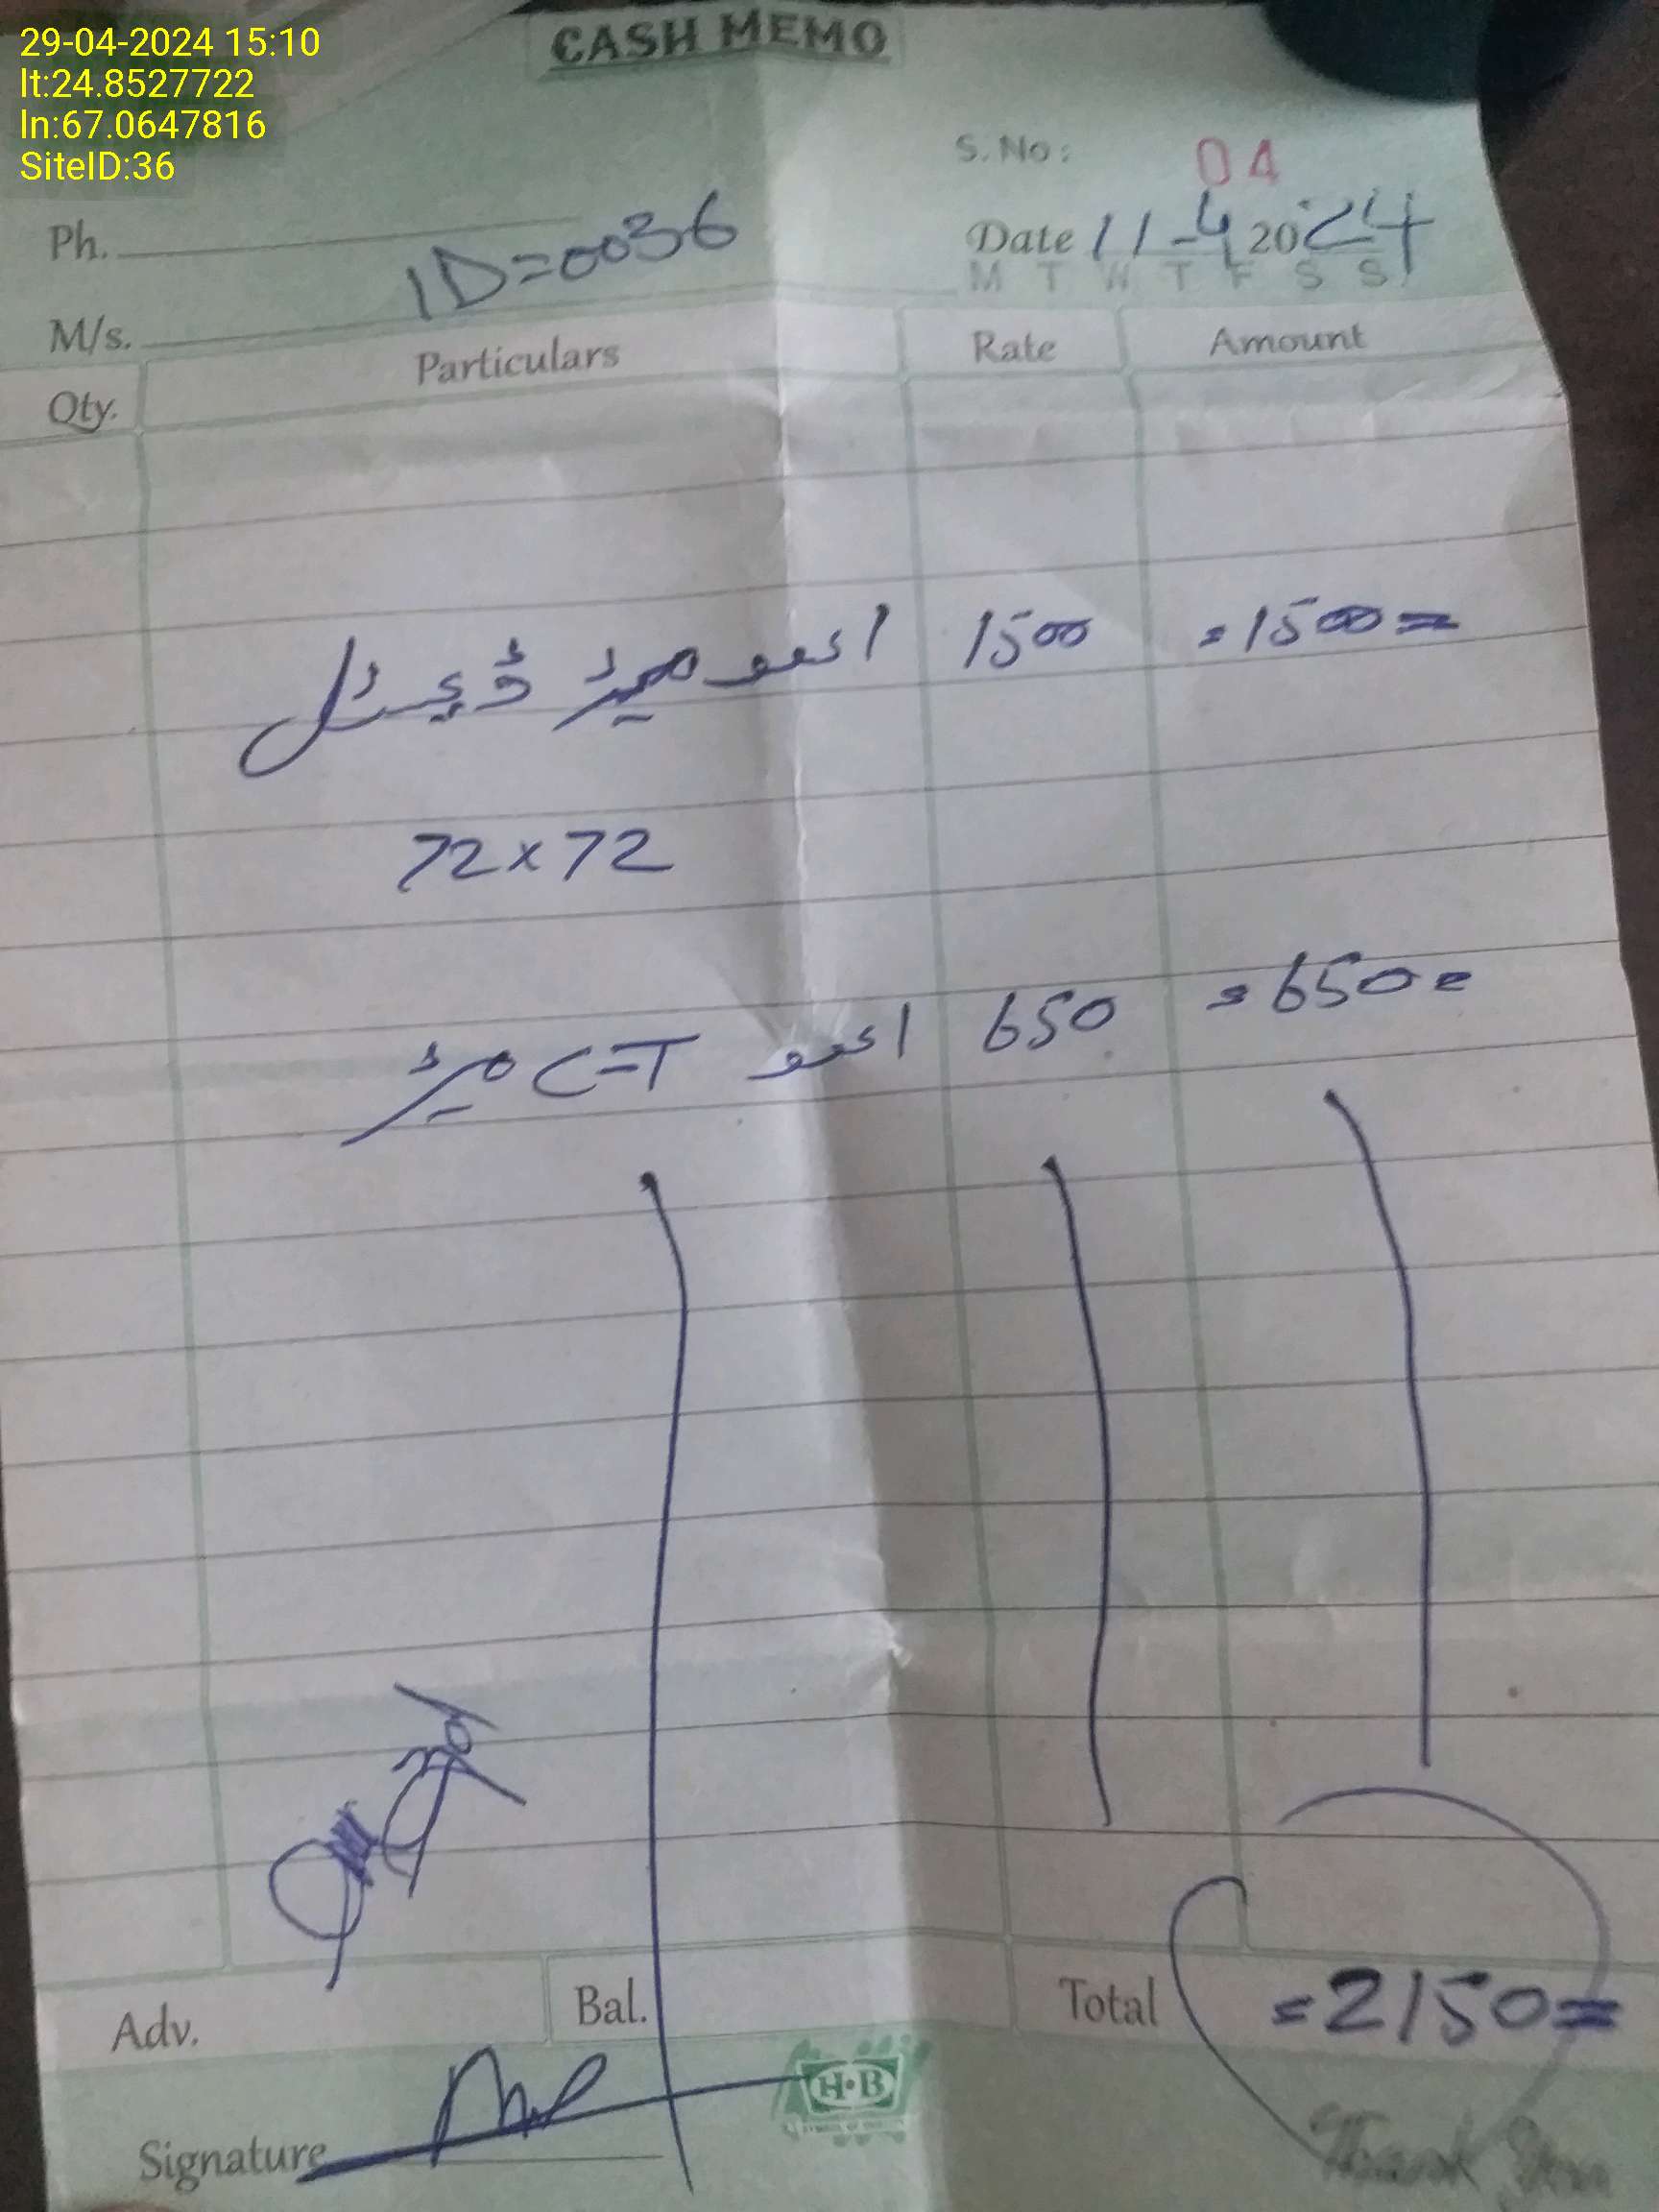 29-04-2024 15:10
lt:24.8527722
ln:67.0647816
SiteID:36
CASH MEMO
S. No: 04
Ph.
Date 11-4 2024
M T W T F S S
M/s. ID=0036
Qty. Particulars Rate Amount
ایمپو میٹر ڈیجیٹل 1500 =1500=
72x72
میٹر C=T ایمپو 650 =650=
Adv. Bal. Total =2150=
H·B
Signature
Thank You